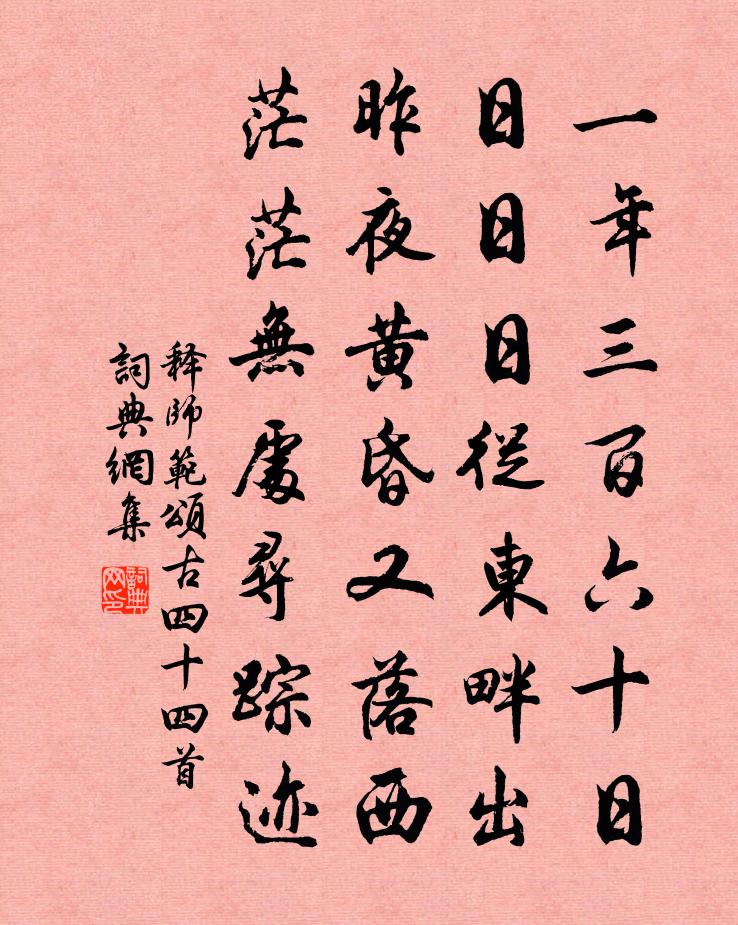 一年三百六十日
日日日從東畔出
昨夜黃昏又落西
茫茫無處尋踪迹
释師範頌古四十四首
詞典網集
詞典网印